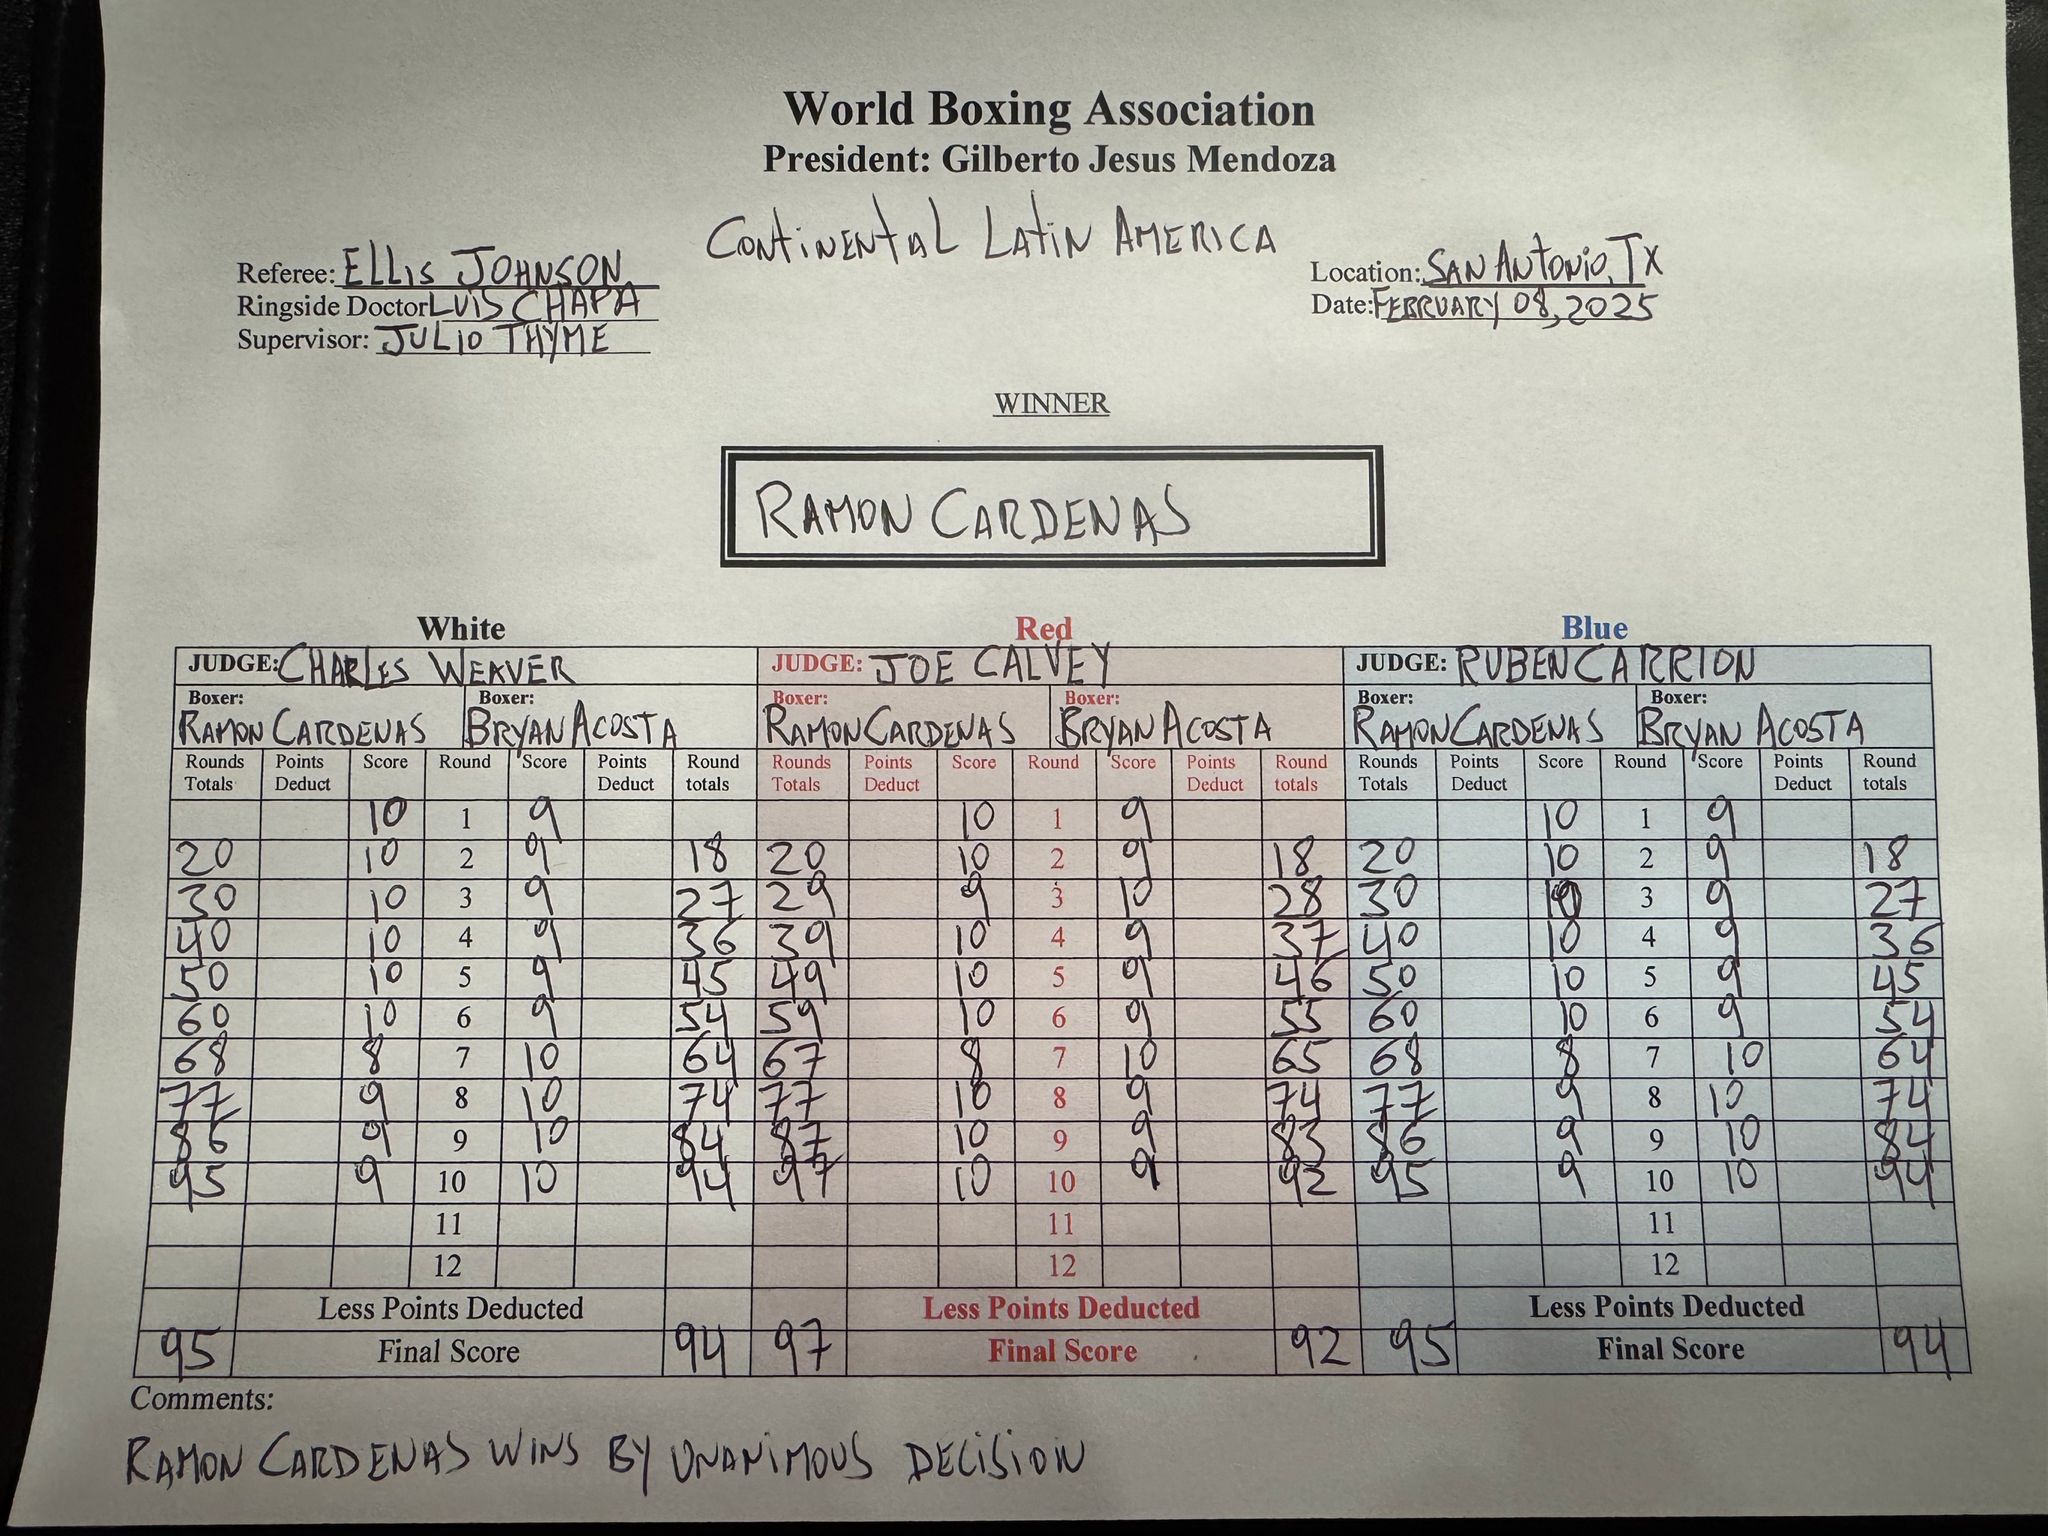 World Boxing Association
President: Gilberto Jesus Mendoza
Continental Latin America
Referee: Ellis Johnson
Location: San Antonio, TX
Ringside Doctor Luis Chapa
Date: February 08, 2025
Supervisor: Julio Thyme
WINNER
Ramon Cardenas
White Red Blue
JUDGE: Charles Weaver JUDGE: Joe Calvey JUDGE: Ruben Carrion
Boxer: Boxer: Boxer: Boxer: Boxer: Boxer:
Ramon Cardenas Bryan Acosta Ramon Cardenas Bryan Acosta Ramon Cardenas Bryan Acosta
Rounds Points Score Round Score Points Round Rounds Points Score Round Score Points Round Rounds Points Score Round Score Points Round
Totals Deduct Deduct totals Totals Deduct Deduct totals Totals Deduct Deduct totals
10 1 9 10 1 9 10 1 9
20 10 2 9 18 20 10 2 9 18 20 10 2 9 18
30 10 3 9 27 29 9 3 10 28 30 10 3 9 27
40 10 4 9 36 39 10 4 9 37 40 10 4 9 36
50 10 5 9 45 49 10 5 9 46 50 10 5 9 45
60 10 6 9 54 59 10 6 9 55 60 10 6 9 54
68 8 7 10 64 67 8 7 10 65 68 8 7 10 64
77 9 8 10 74 77 10 8 9 74 77 9 8 10 74
86 9 9 10 84 87 10 9 9 83 86 9 9 10 84
95 9 10 10 94 97 10 10 9 92 95 9 10 10 94
11 11 11
12 12 12
Less Points Deducted Less Points Deducted Less Points Deducted
95 Final Score 94 97 Final Score 92 95 Final Score 94
Comments:
Ramon Cardenas wins by unanimous decision